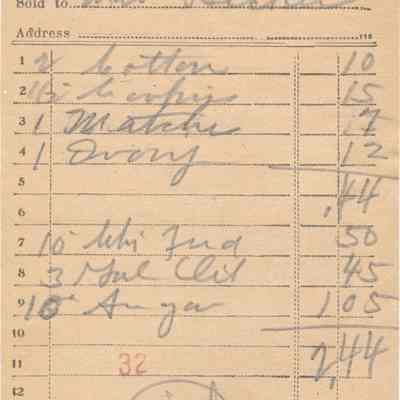 Sold to Mrs
Address
1 2 Cotton 10
2 15
3 1 Matches 7
4 1 Ivory 12
5 .44
6
7 10 Chi Fud 50
8 3 Gal Oil 45
9 10 Sugar 105
10
11 32 2,44
12